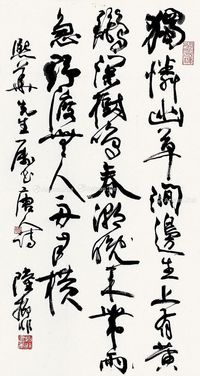 獨憐幽草澗邊生上有黃
鸝深樹鳴春潮晚来帶雨
急野渡無人舟自橫
熙華先生屬书唐人詩 陸抑非